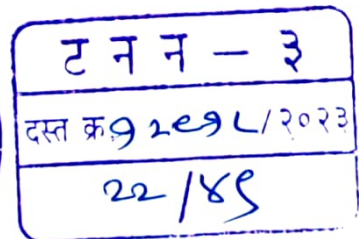 ट न न - ३
दस्त क्र १२९१८/२०२३
२२/४९